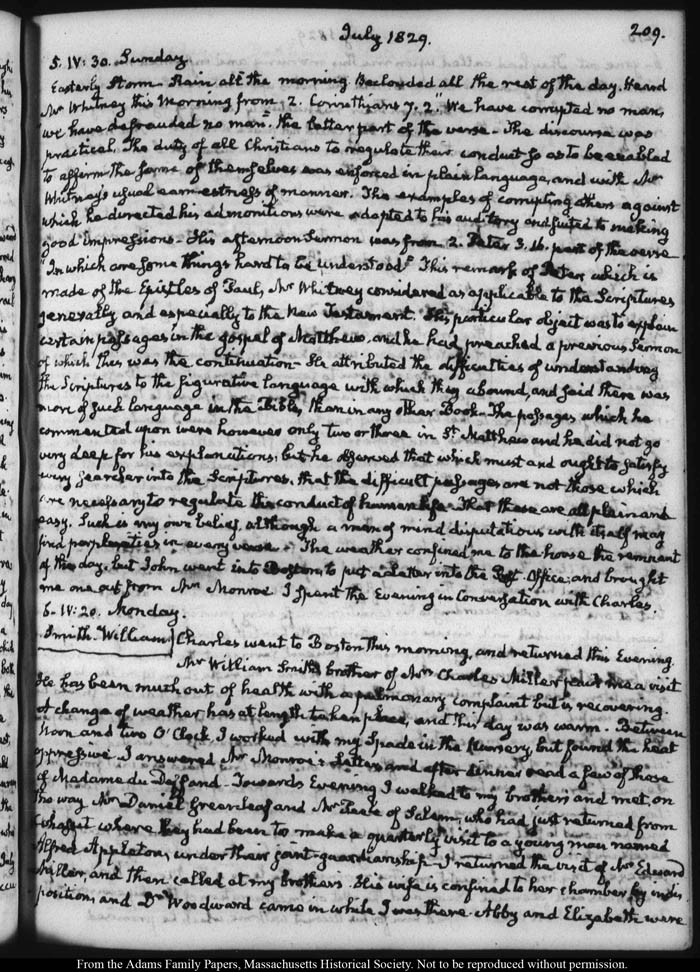 July 1829.
209.
5. IV:30. Sunday.
Easterly Storm. Rain all the morning. Beclouded all the rest of the day. Heard
Mr Whitney this Morning from, 2. Corinthians 7. 2. "We have corrupted no man,
we have defrauded no man". the latter part of the verse. The discourse was
practical. The duty of all Christians to regulate their conduct so as to be enabled
to affirm the same of themselves was enforced in plain language, and with Mr
Whitney's usual earnestness of manner. The examples of corrupting others against
which he directed his admonitions were adapted to his auditory and suited to making
good impressions. His afternoon Sermon was from 2. Peter 3. 16. part of the verse
"In which are some things hard to be understood" This remark of Peter, which is
made of the Epistles of Paul, Mr Whitney considered as applicable to the Scriptures
generally and especially to the New Testament. His particular object was to explain
certain passages in the gospel of Matthew, and he had preached a previous Sermon
of which this was the continuation. He attributed the difficulties of understanding
the Scriptures to the figurative language with which they abound, and said there was
more of such language in the Bible, than in any other Book. The passages which he
commented upon were however only two or three in St. Matthew and he did not go
very deep for his explanations, but he observed that which must and ought to satisfy
every searcher into the Scriptures, that the difficult passages are not those which
are necessary to regulate the conduct of human life. That these are all plain and
easy. Such is my own belief, although a man of mind disputatious with itself may
find perplexities in every verse. The weather confined me to the house the remnant
of the day, but John went into Boston, to put a Letter into the Post Office; and brought
me one out from Mr Monroe. I spent the Evening in Conversation with Charles.
6. IV:20. Monday.
Smith. William
Charles went to Boston this morning, and returned this Evening.
Mr William Smith brother of Mrs Charles Miller paid me a visit
He has been much out of health with a pulmonary complaint but is recovering.
A change of weather has at length taken place, and this day was warm. Between
Noon and two O'Clock I worked with my Spade in the Nursery, but found the heat
oppressive. I answered Mr Monroe's Letter, and after dinner read a few of those
of Madame du Deffand. Towards Evening I walked to my brother's and met, on
the way Mr Daniel Greenleaf and Mr of Salem, who had just returned from
where they had been to make a quarterly visit to a young man named
Alfred Appleton, under their joint guardianship. I returned the visit of Mr Edward
Miller, and then called at my brother's. His wife is confined to her chamber by indis-
position, and Dr Woodward came in while I was there. Abby and Elizabeth were
From the Adams Family Papers, Massachusetts Historical Society. Not to be reproduced without permission.